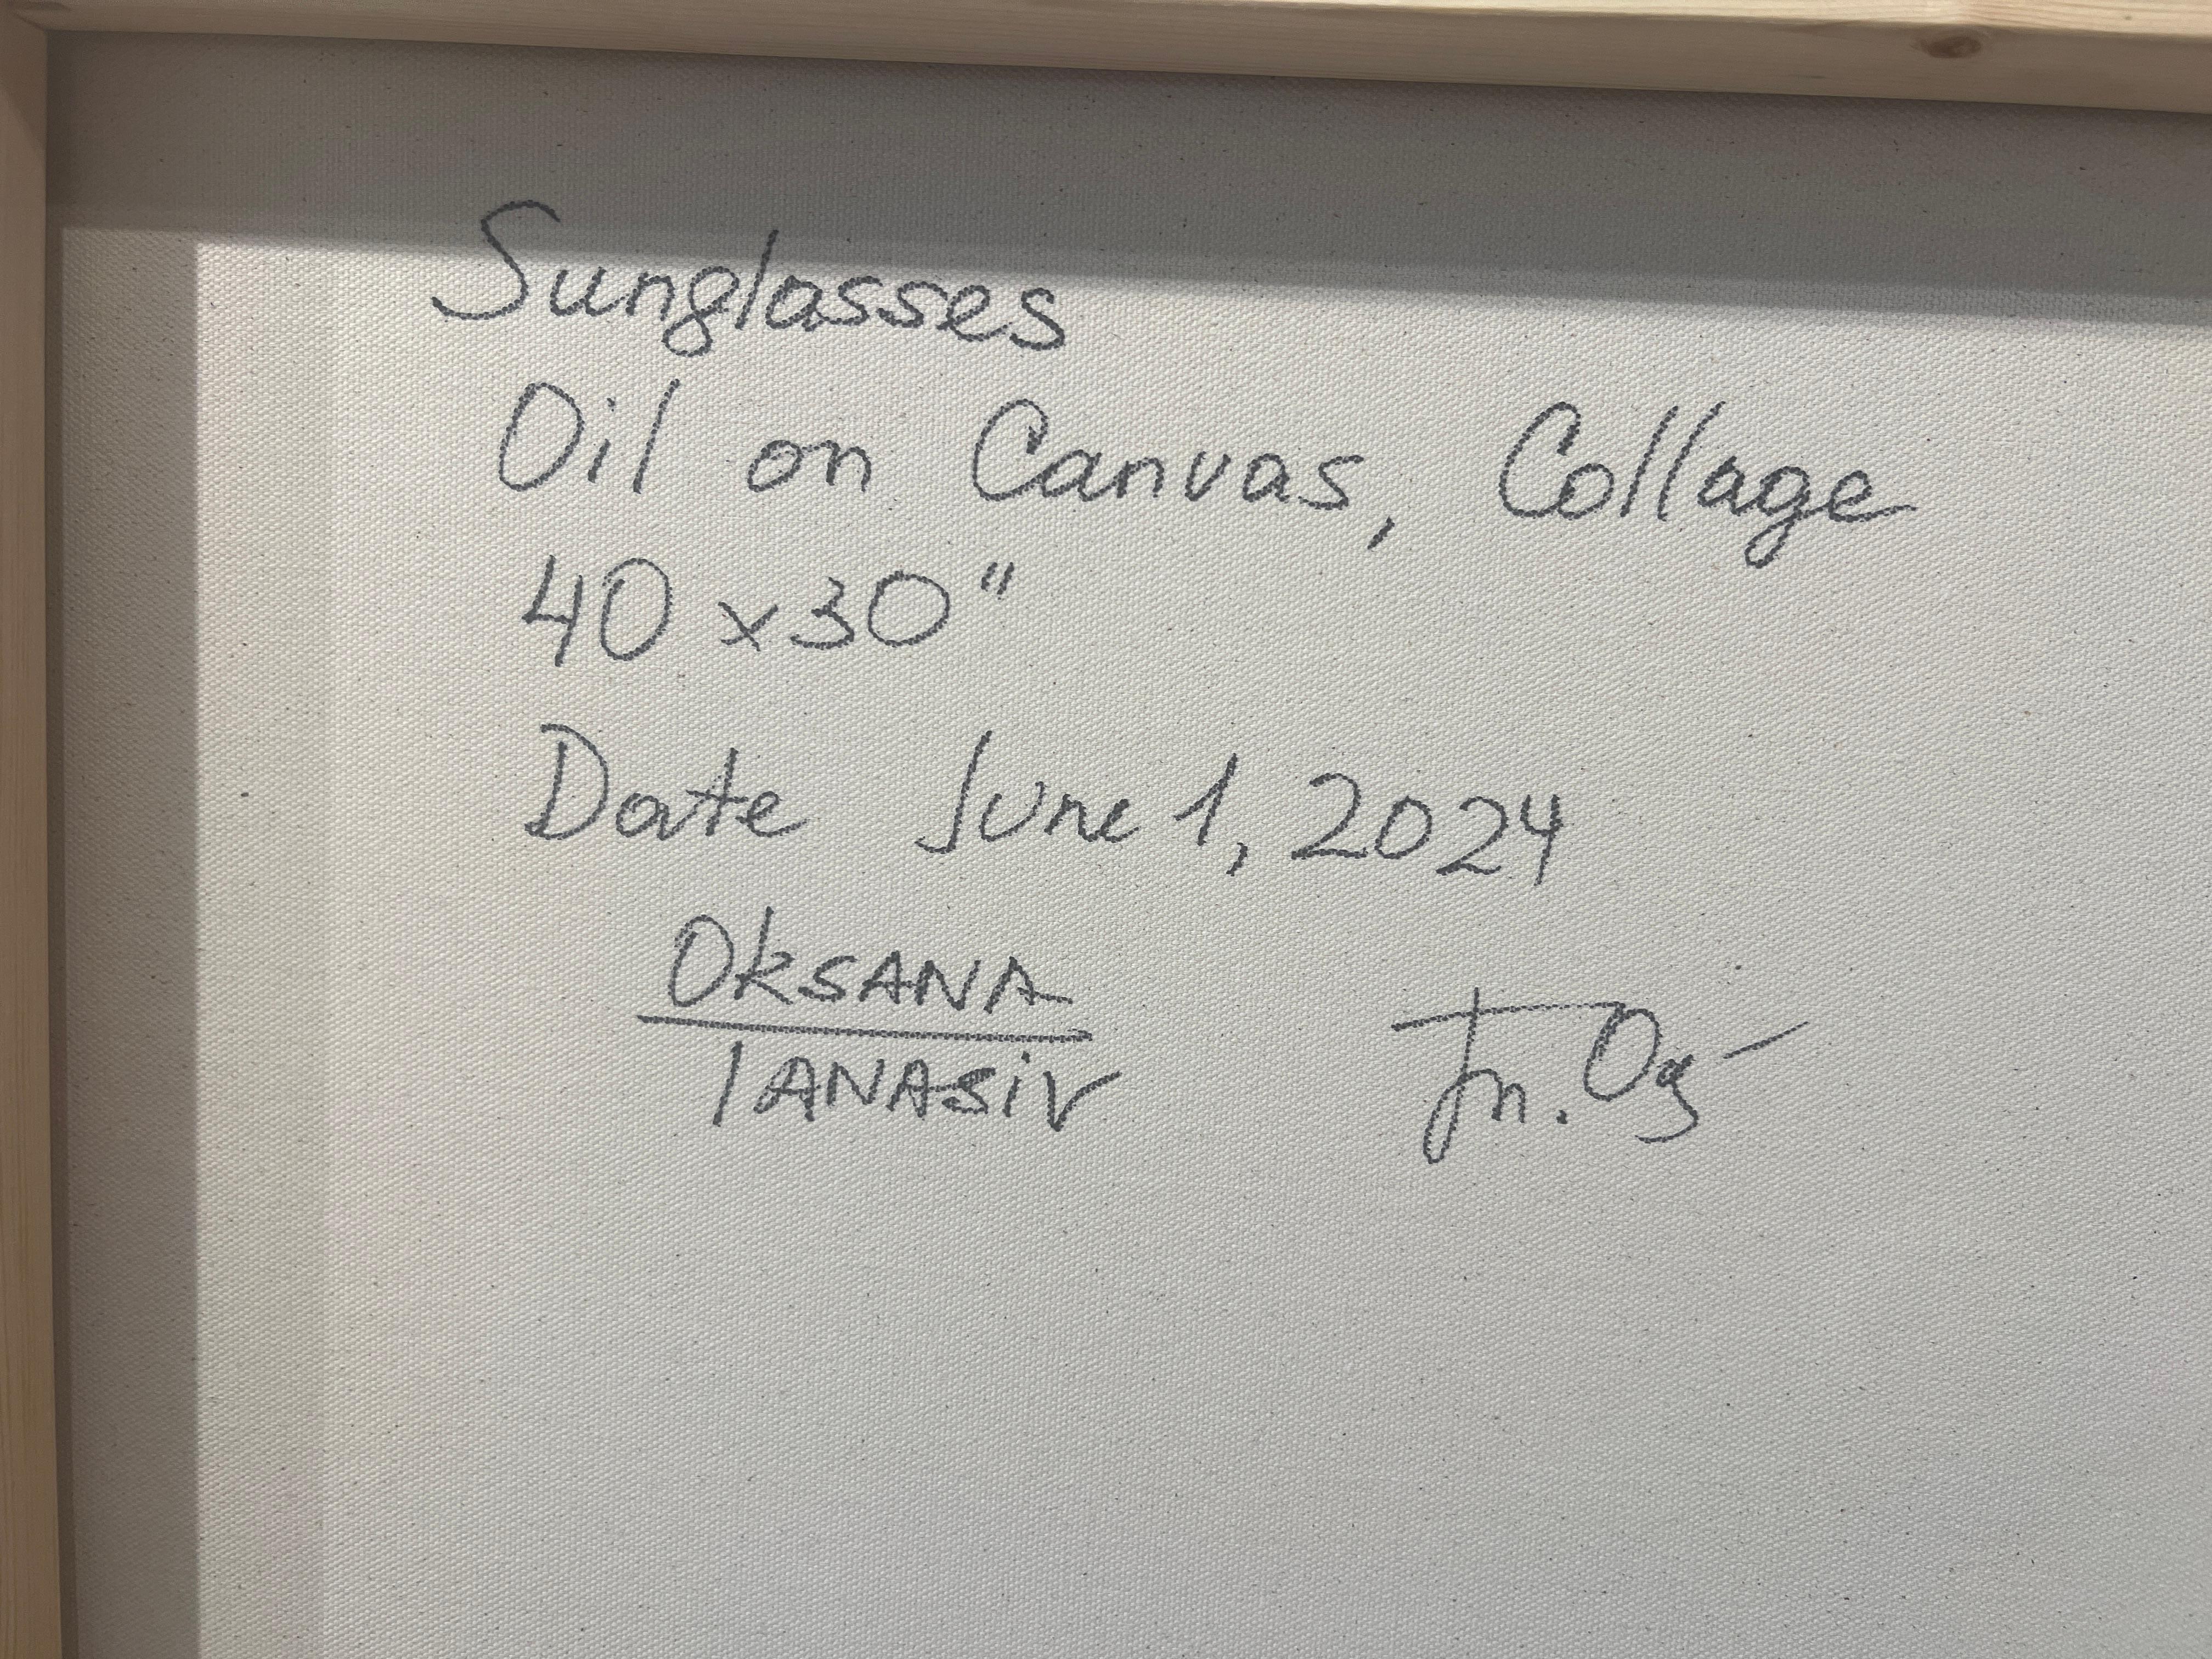 Sunglasses
Oil on Canvas, Collage
40 x 30"
Date June 1, 2024
OKSANA
TANASIV